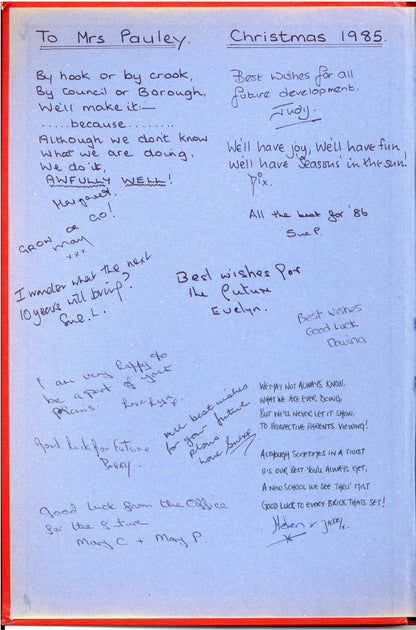 To Mrs Pauley.
Christmas 1985.
By hook or by crook,
By Council or Borough,
We'll make it:—
.....because.........
Although we don't know
what we are doing,
We do it,
AWFULLY WELL!
Margaret.
GROW OR GO!
Mary
xxx
I wonder what the next
10 years will bring?
Sue. L.
Best wishes for all
future development.
Judy.
We'll have joy, We'll have fun
We'll have 'Seasons' in the sun.
x.
All the best for '86
Sue P.
Best wishes for
the future
Evelyn.
Best wishes
Good Luck
Davina
I am very happy to
be a part of your
plans.
Good luck for Future
With best wishes
for your future
plans
love
Good Luck from the Office
for the future
Mary C + Mary P.
We may not always know.
What we are ever doing.
But we'll never let it show.
To prospective parents viewing!
Although sometimes in a twist
It's our best you'll always get,
A new school we see thru' mist
Good luck to every brick thats set!
Helen &